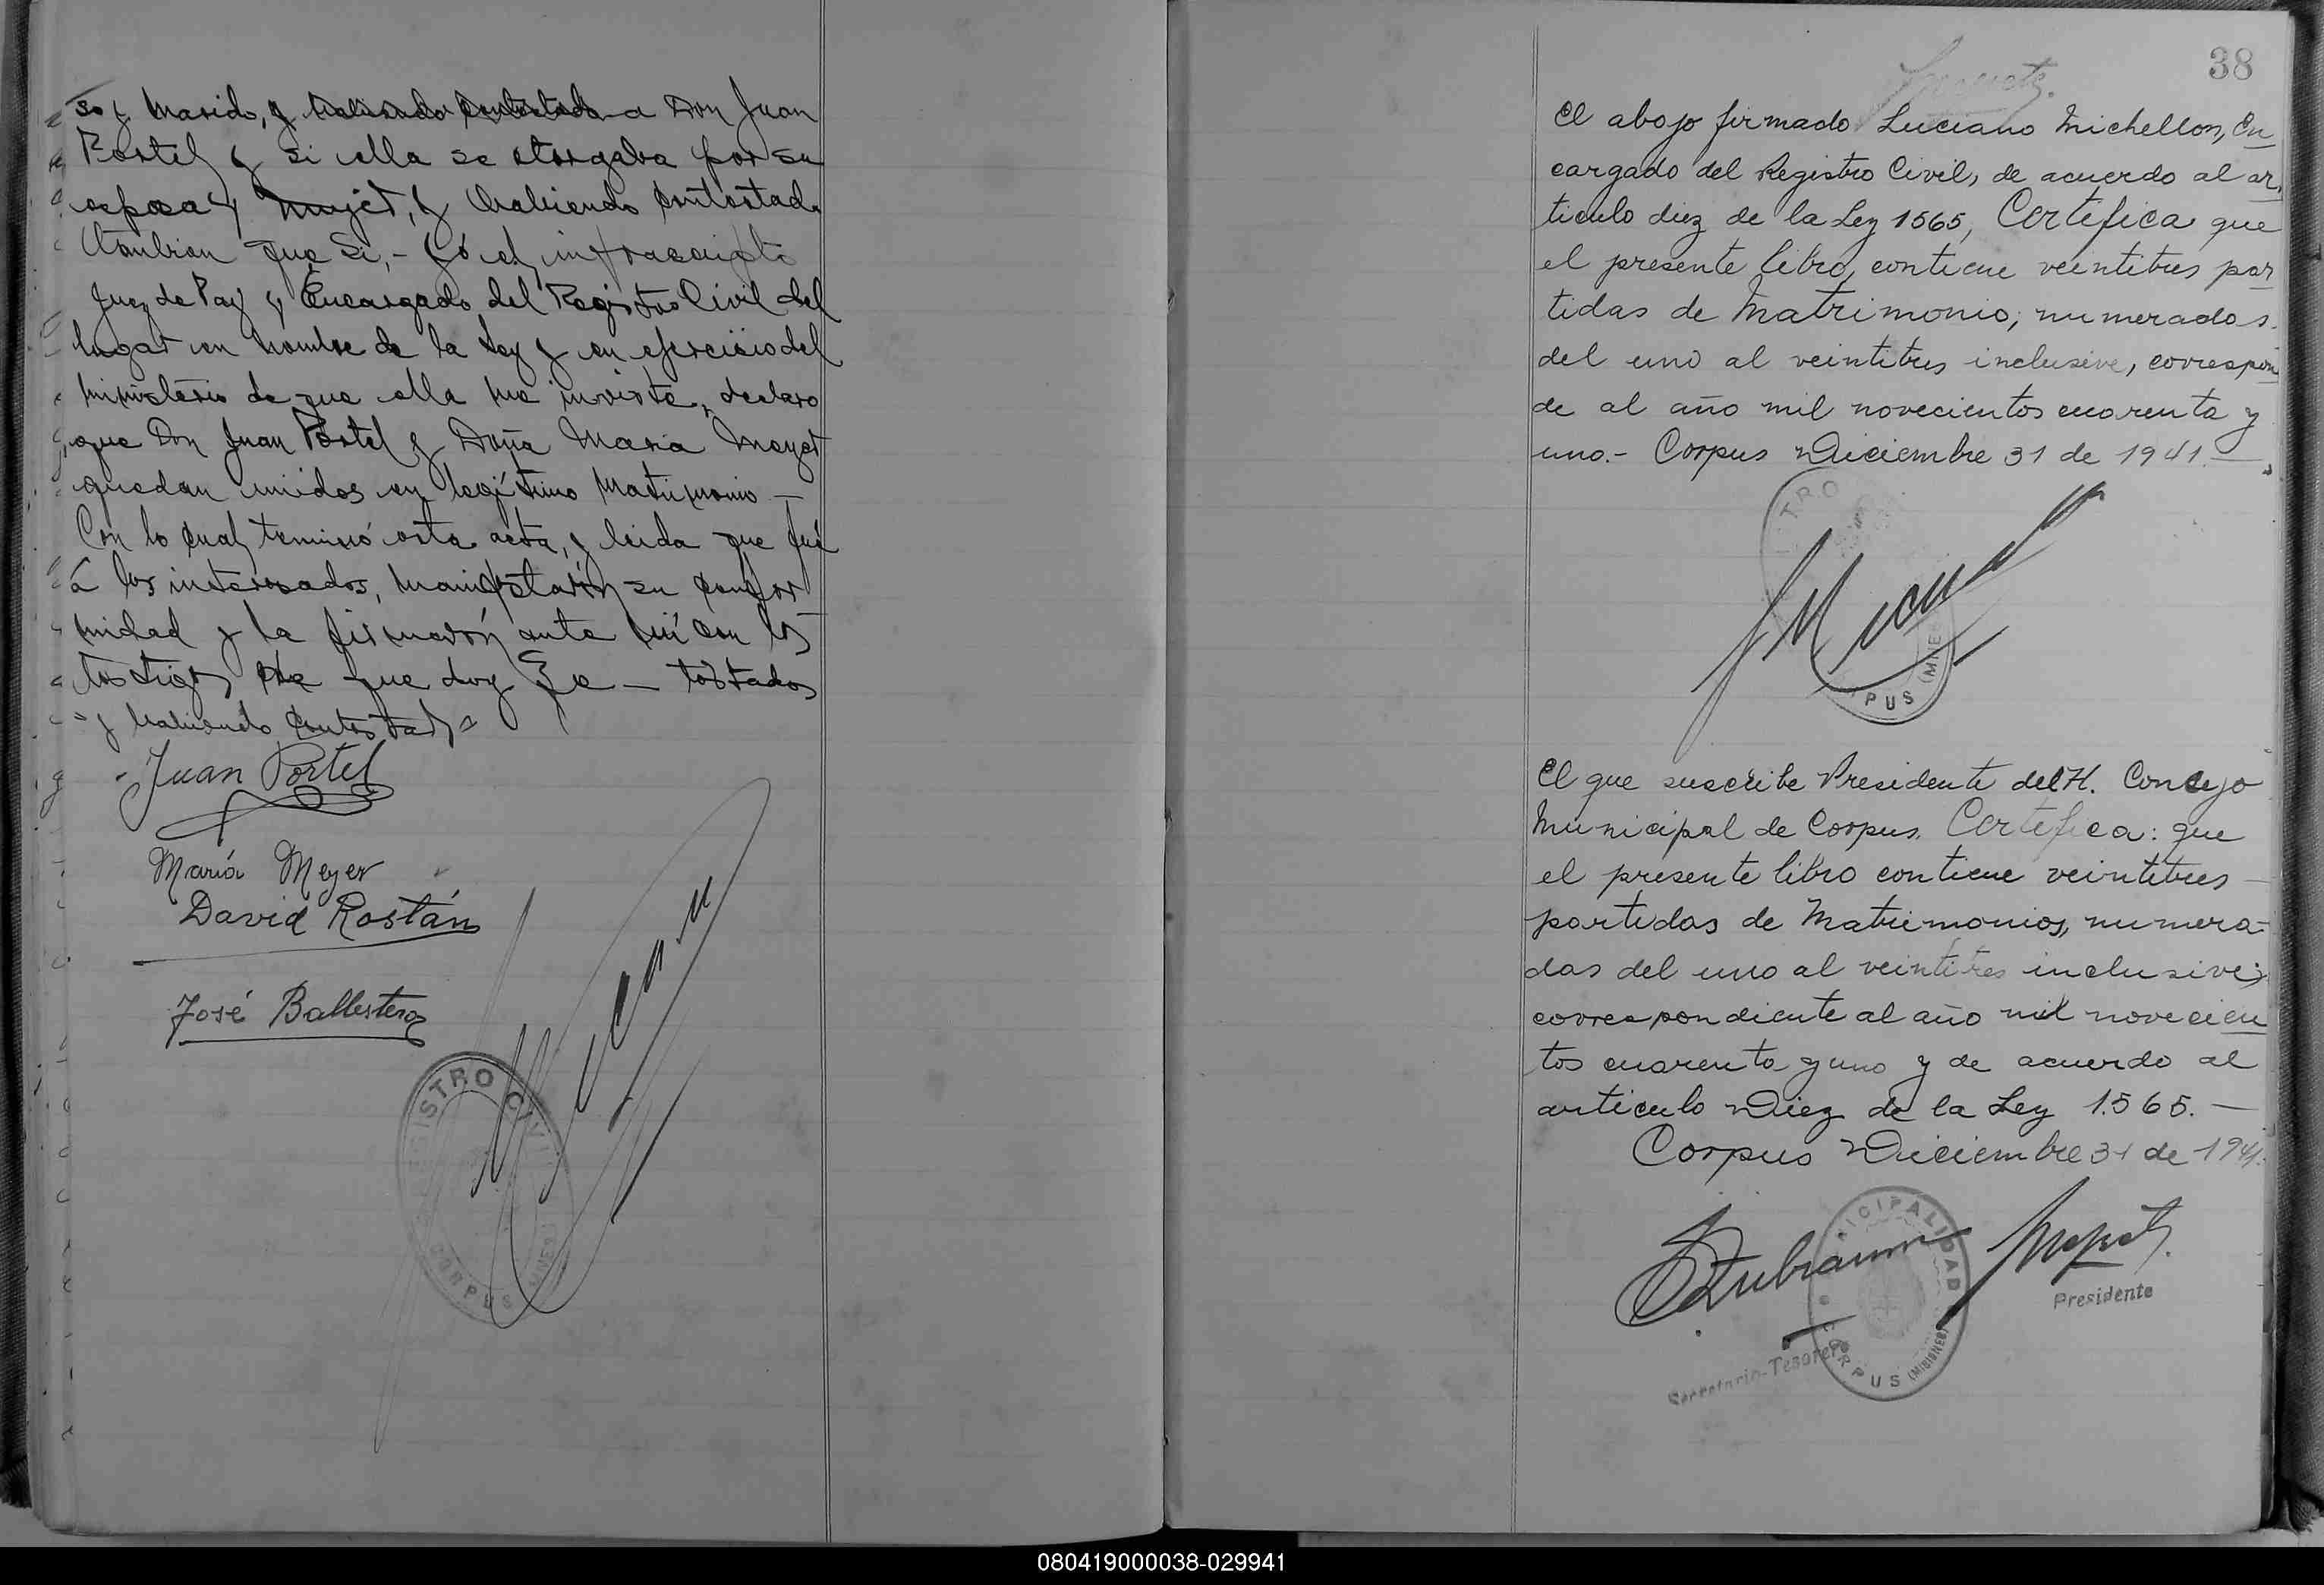 so y marido, y habiendo contestado a Don Juan
Portel y si ella se otorgaba por su
esposa y mujer, y habiendo contestado
tambien que Si,- Yó el infrascripto
Juez de Paz y Encargado del Registro Civil del
lugar en nombre de la Ley y en ejercicio del
ministerio de que ella me inviste, declaro
que Don Juan Portel y Doña Maria Meyer
quedan unidos en legítimo Matrimonio —
Con lo cual terminó esta acta, y leida que fué
á los interesados, manifestarón su confor
midad y la firmarón ante mí con los
testigos de que doy Fe — testados
y habiendo contestado =
Juan Portel
María Meyer
David Rostán
José Ballesteros
REGISTRO CIVIL
CORPUS
38
El abajo firmado Luciano Michellon, En
cargado del Registro Civil, de acuerdo al ar
ticulo diez de la Ley 1565, Certifica que
el presente libro, contiene veintitres par
tidas de Matrimonio; numerados
del uno al veintitres inclusive, correspon
de al año mil novecientos cuarenta y
uno.- Corpus Diciembre 31 de 1941.—
El que suscribe Presidente del H. Concejo
Municipal de Corpus. Certifica: que
el presente libro contiene veintitres —
partidas de Matrimonios, numera-
das del uno al veintitres inclusive;
correspondiente al año mil novecien
tos cuarenta y uno y de acuerdo al
articulo Diez de la Ley 1.565.—
Corpus Diciembre 31 de 1941.
MUNICIPALIDAD
CORPUS (MISIONES)
Presidente
Secretario-Tesorero
080419000038-029941